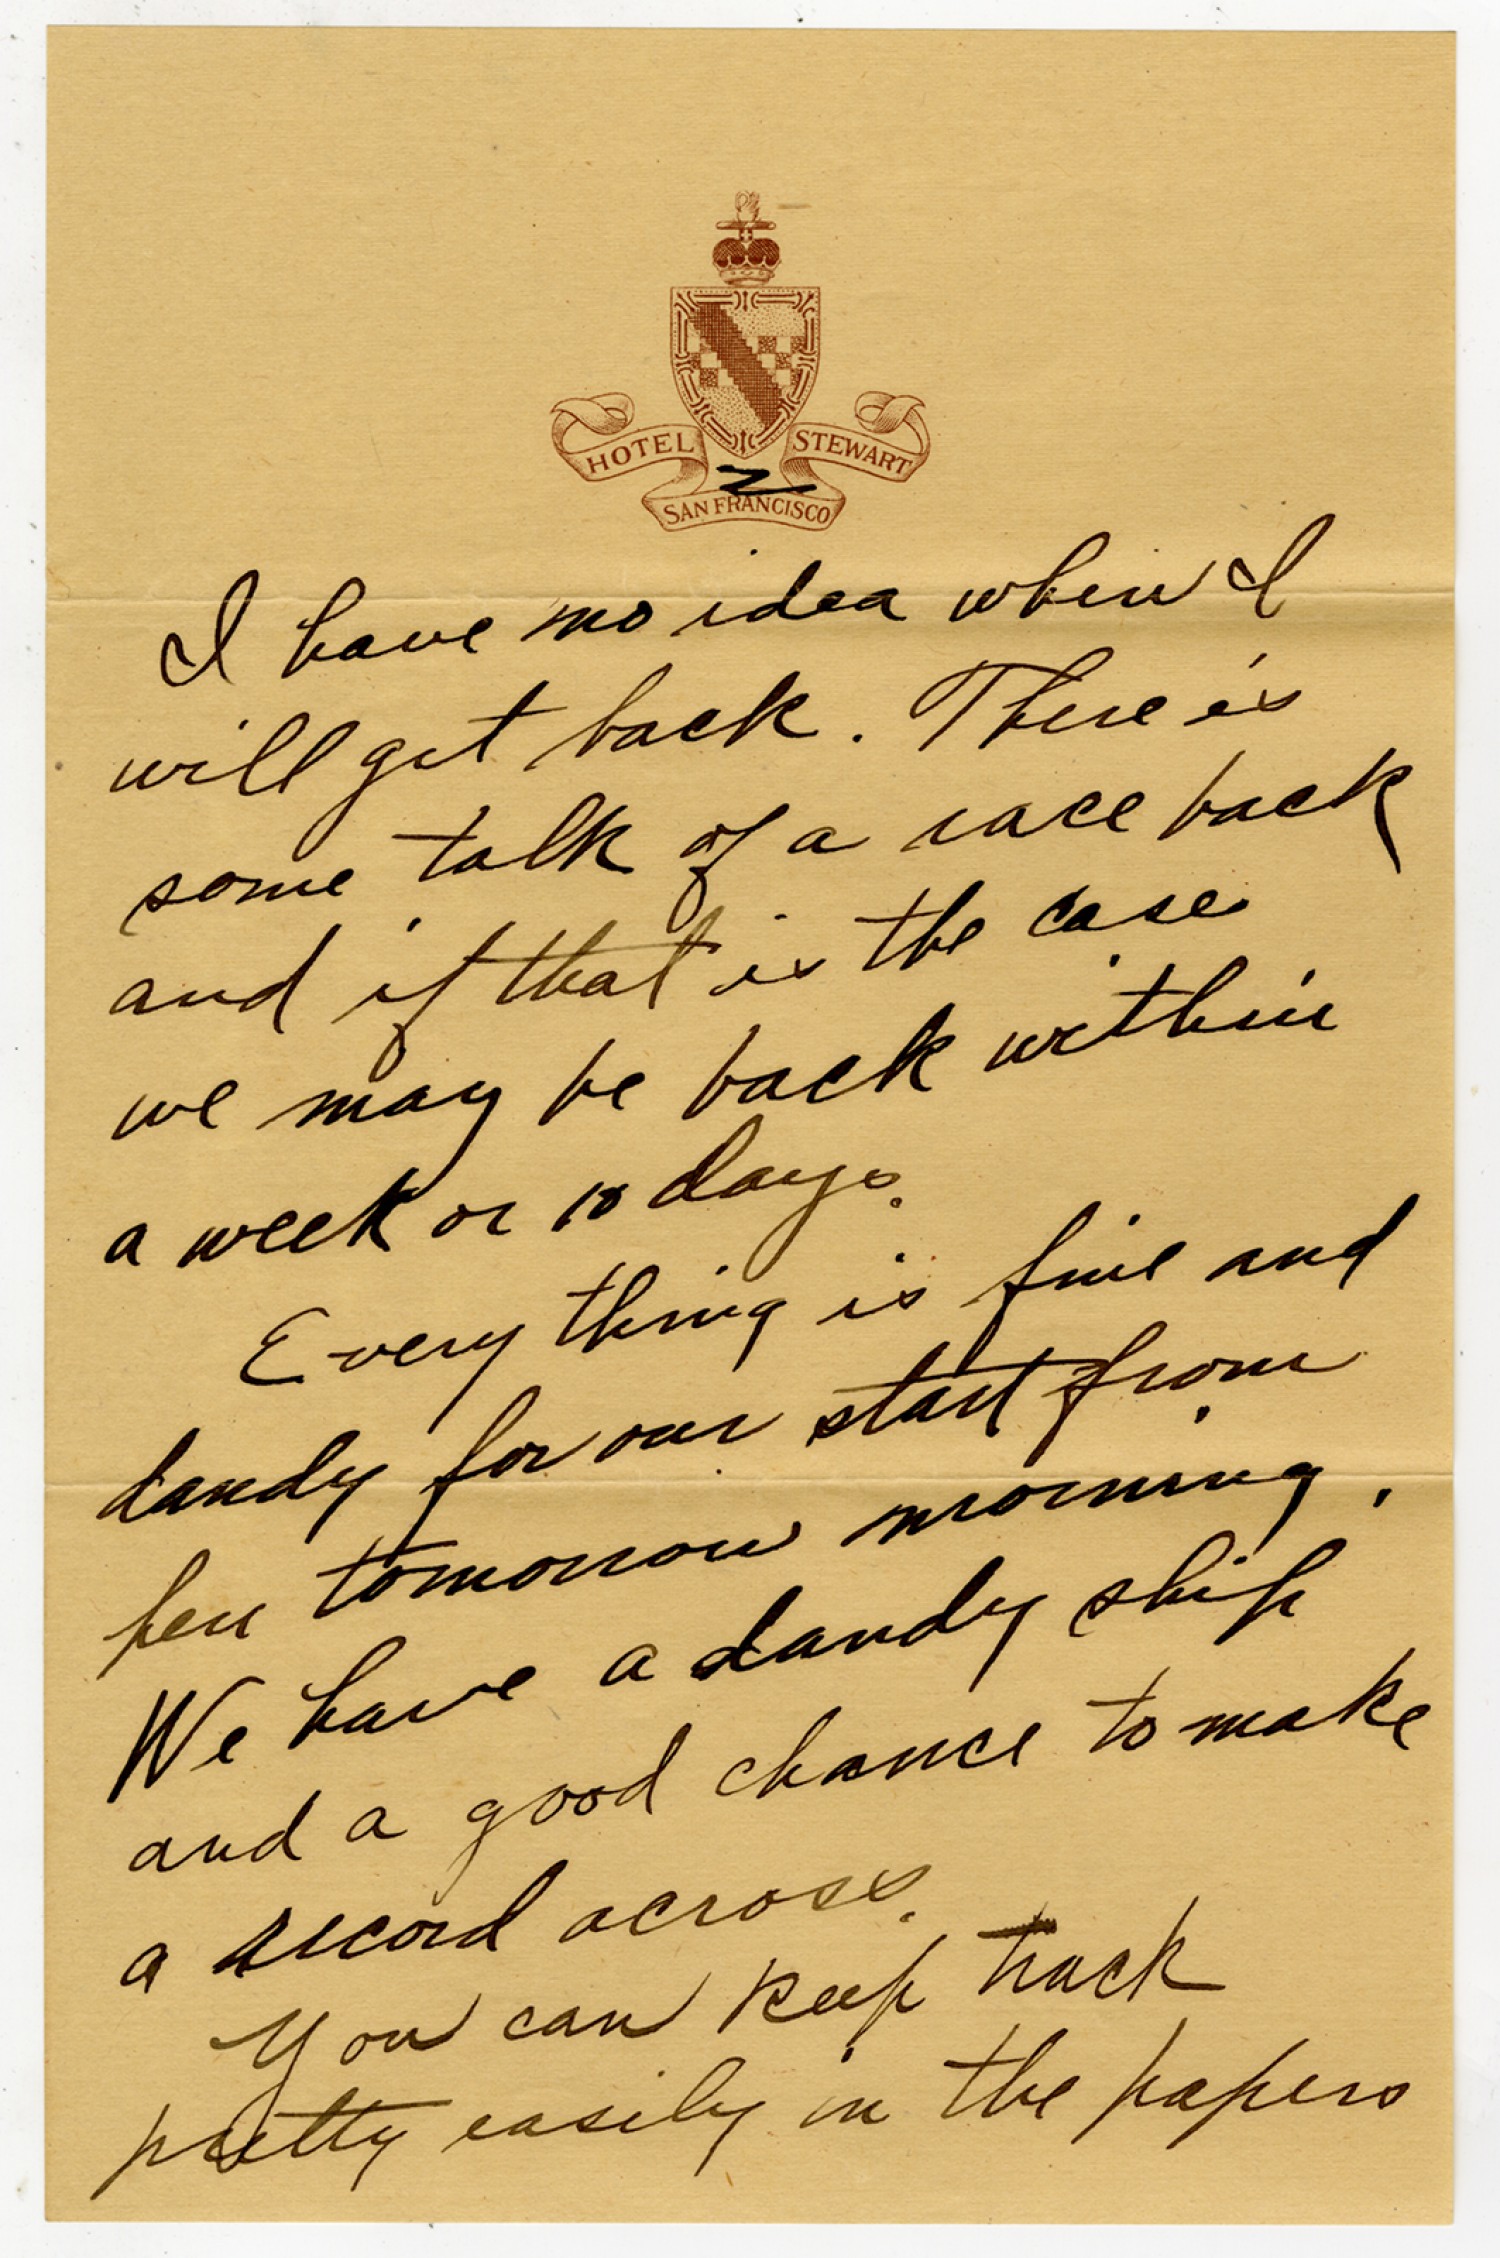 HOTEL STEWART
SAN FRANCISCO
2
I have no idea when I
will get back. There is
some talk of a race back
and if that is the case
we may be back within
a week or 10 days.
Everything is fine and
dandy for our start from
here tomorrow morning.
We have a dandy ship
and a good chance to make
a record across.
You can keep track
pretty easily in the papers